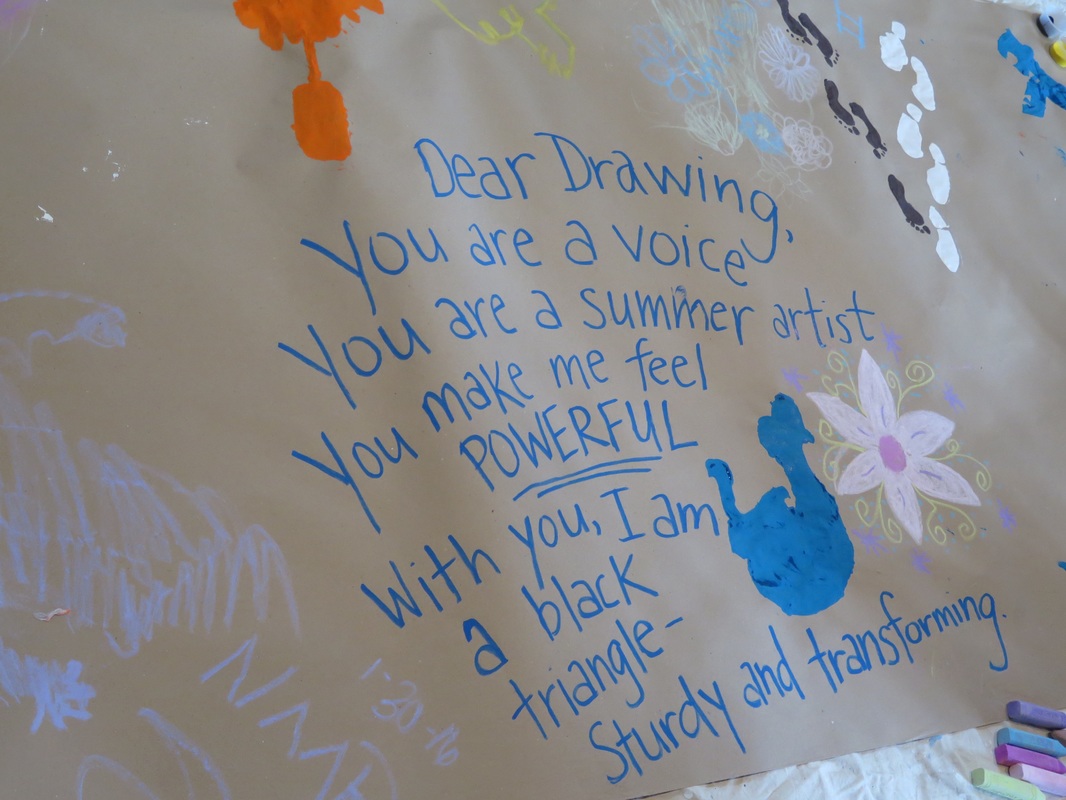 Dear Drawing,
You are a voice
You are a summer artist
You make me feel
POWERFUL
With you, I am
a black
triangle-
Sturdy and transforming.